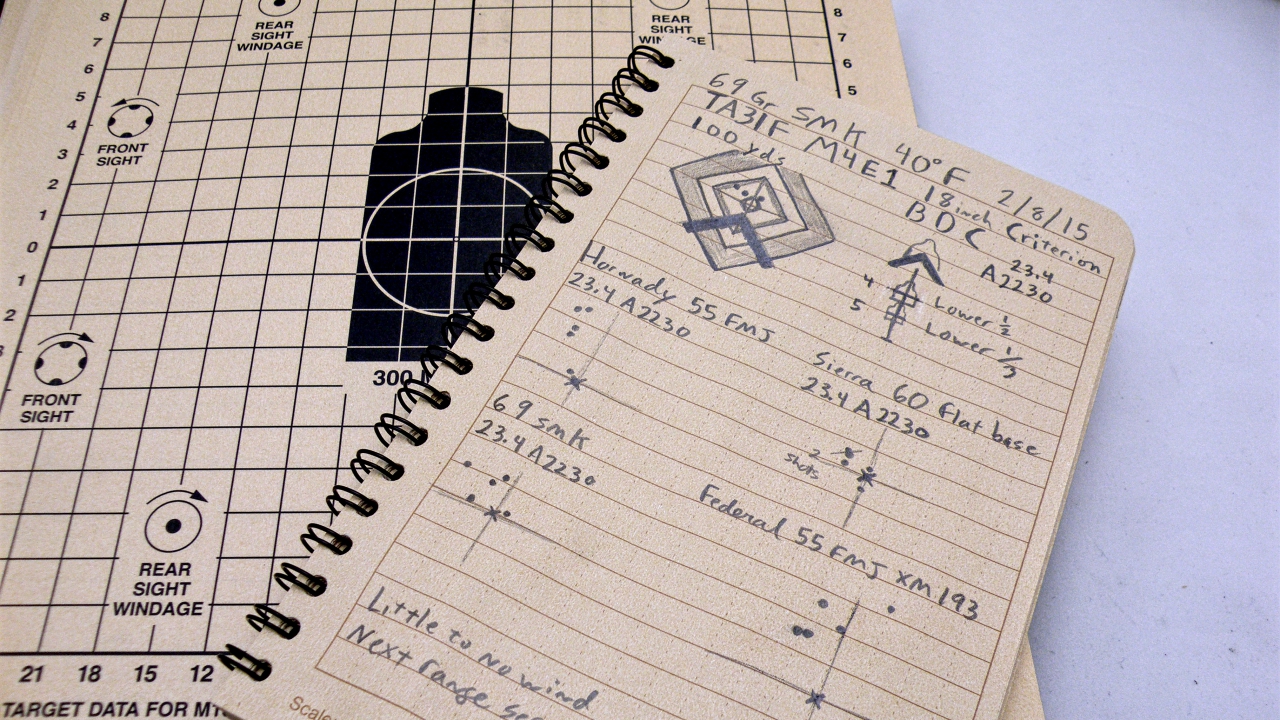 8
7
6
5
4
3
2
1
0
1
2
REAR
SIGHT
WINDAGE
REAR
SIGHT
8
7
6
5
FRONT
SIGHT
FRONT
SIGHT
300
REAR
SIGHT
WINDAGE
21 18 15 12
TARGET DATA FOR
69 Gr SMK 40°F 2/8/15
TA31F M4E1 18inch Criterion
100 yds
BDC
23.4
A2230
4 Lower 1/2
5 Lower 1/3
Hornady 55 FMJ
23.4 A2230
Sierra 60 flat base
23.4 A2230
2
shots
69 SMK
23.4 A2230
Federal 55 FMJ XM193
Little to no wind
Next range